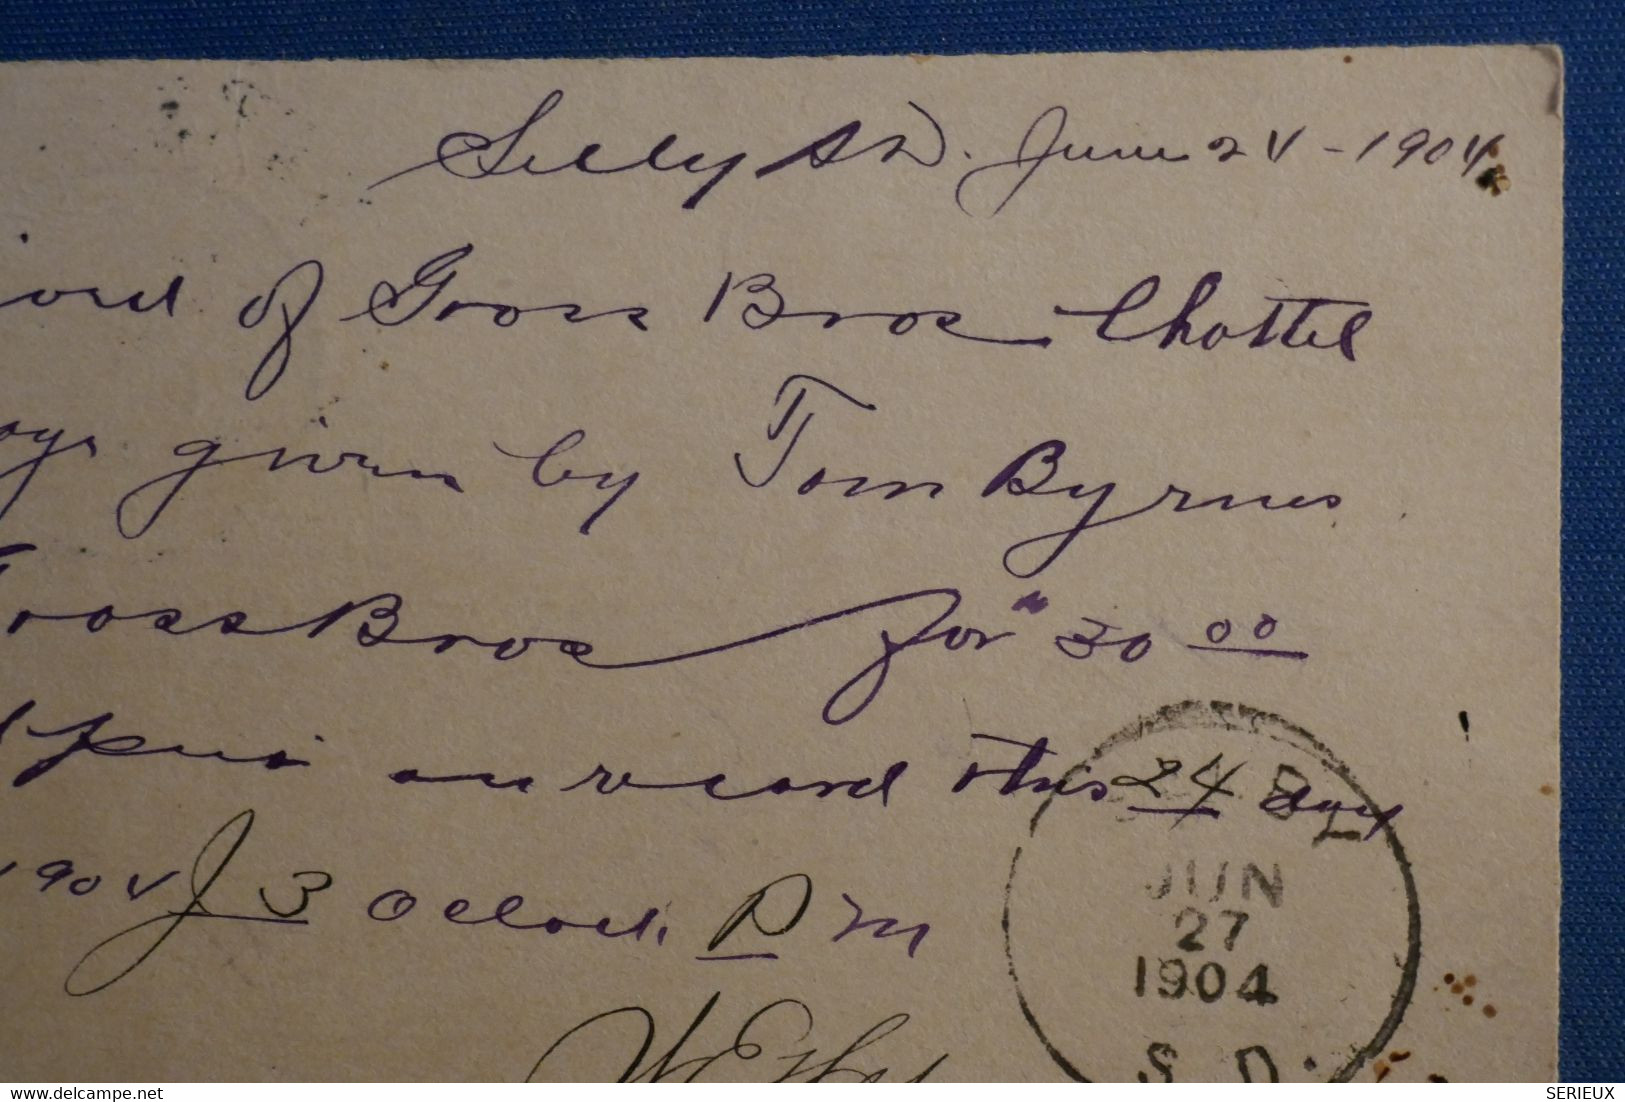 Selby S D. June 24 - 1904
of Gross Bros Chattel
given by Tom Byrnes
Gross Bros for "30 00
on record this 24 day
1904 3 Oclock P M
JUN
27
1904
S.D.
delcampe.net
SERIEUX